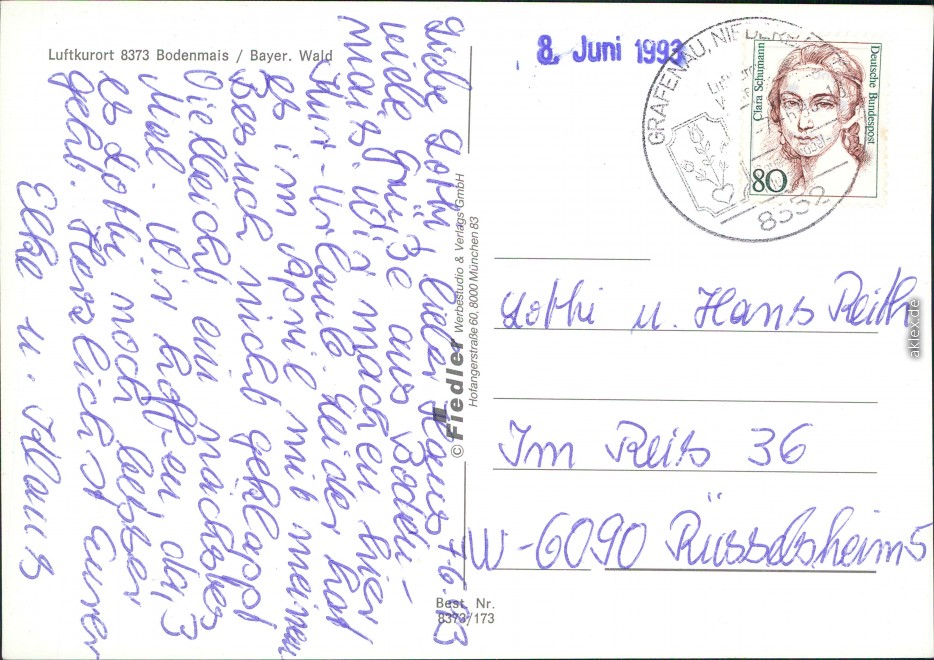 Luftkurort 8373 Bodenmais / Bayer. Wald
Liebe Lothi, lieber Hans 7.6.93
viele Grüße aus Boden-
mais. Wir machen hier
Kur-Urlaub. Leider hat
es im April mit meinem
Besuch nicht geklappt
Vielleicht ein nächstes
Mal. Wir hoffen daß
es Lothi noch besser
geht. Herzlichst Euren
Elke u. Klaus
© Fiedler Werbestudio & Verlags GmbH
Hofangerstraße 60, 8000 München 83
Best. Nr.
8373/173
8. Juni 1993
GRAFENAU, NIEDERB
8352
Clara Schumann
Deutsche Bundespost
80
Lothi u. Hans Reith
Im Reis 36
W-6090 Rüsselsheim 5
aklex.de